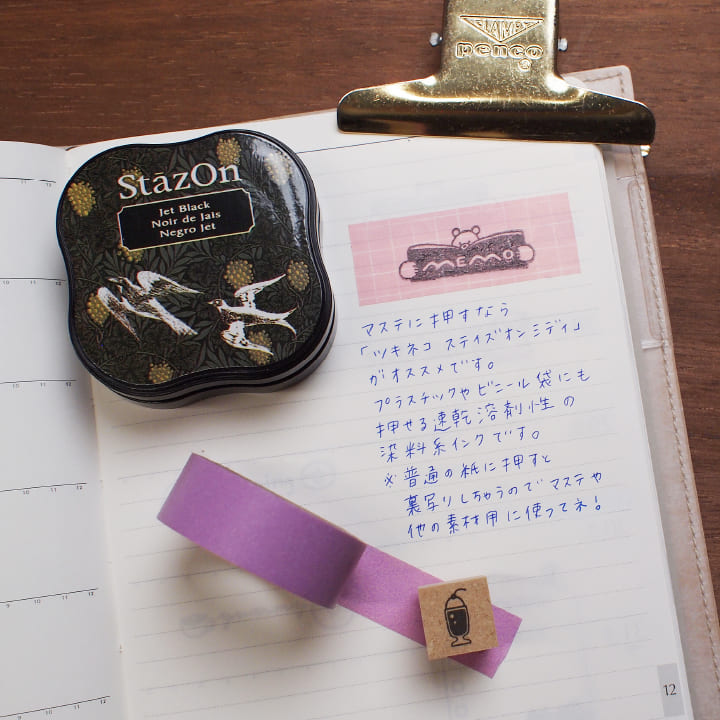 CLAMPY
penco
®
StāzOn
Jet Black
Noir de Jais
Negro Jet
MEMO
マステに押すなら
「ツキネコ ステイズオンミディ」
がオススメです。
プラスチックやビニール袋にも
押せる速乾溶剤性の
染料系インクです。
※普通の紙に押すと
裏写りしちゃうのでマステや
他の素材用に使ってネ!
10 11 12
10 11 12
12